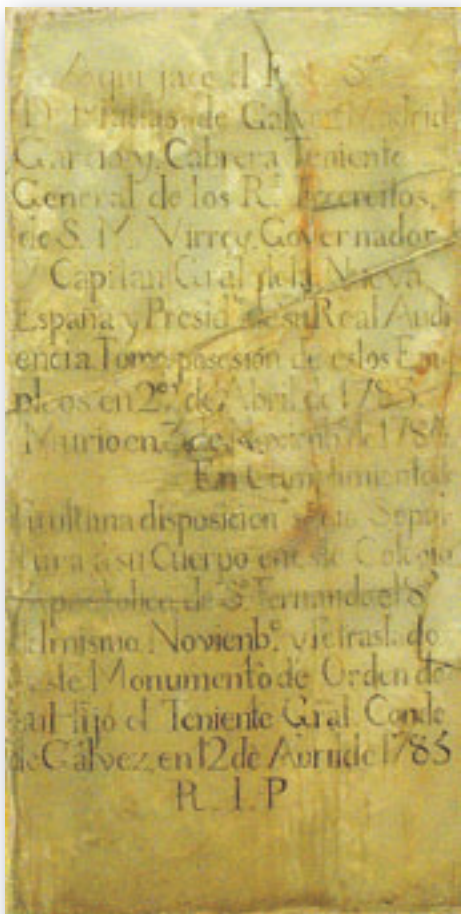 Aqui jace el Exmo. Sr.
Dn. Matias de Galvez Madrid
Garcia y Cabrera Teniente
General de los Rs. Exercitos,
de S. M. Virrey Governador
y Capitan Gral. dela Nueva
España y Presidte. de su Real Audi
encia. Tomo posesión de estos Em-
pleos en 29. de Abril de 1783.
Murio en 3 de Novienbe. de 1784
En Cumplimiento de
su ultima disposicion se dio Sepul
tura á su Cuerpo en este Colegio
Apostolico de Sn. Fernando el 8
del mismo Novienbe. y se traslado
a este Monumento de Orden de
su Hijo el Teniente Gral. Conde
de Gálvez, en 12 de Abril de 1785
R. I. P